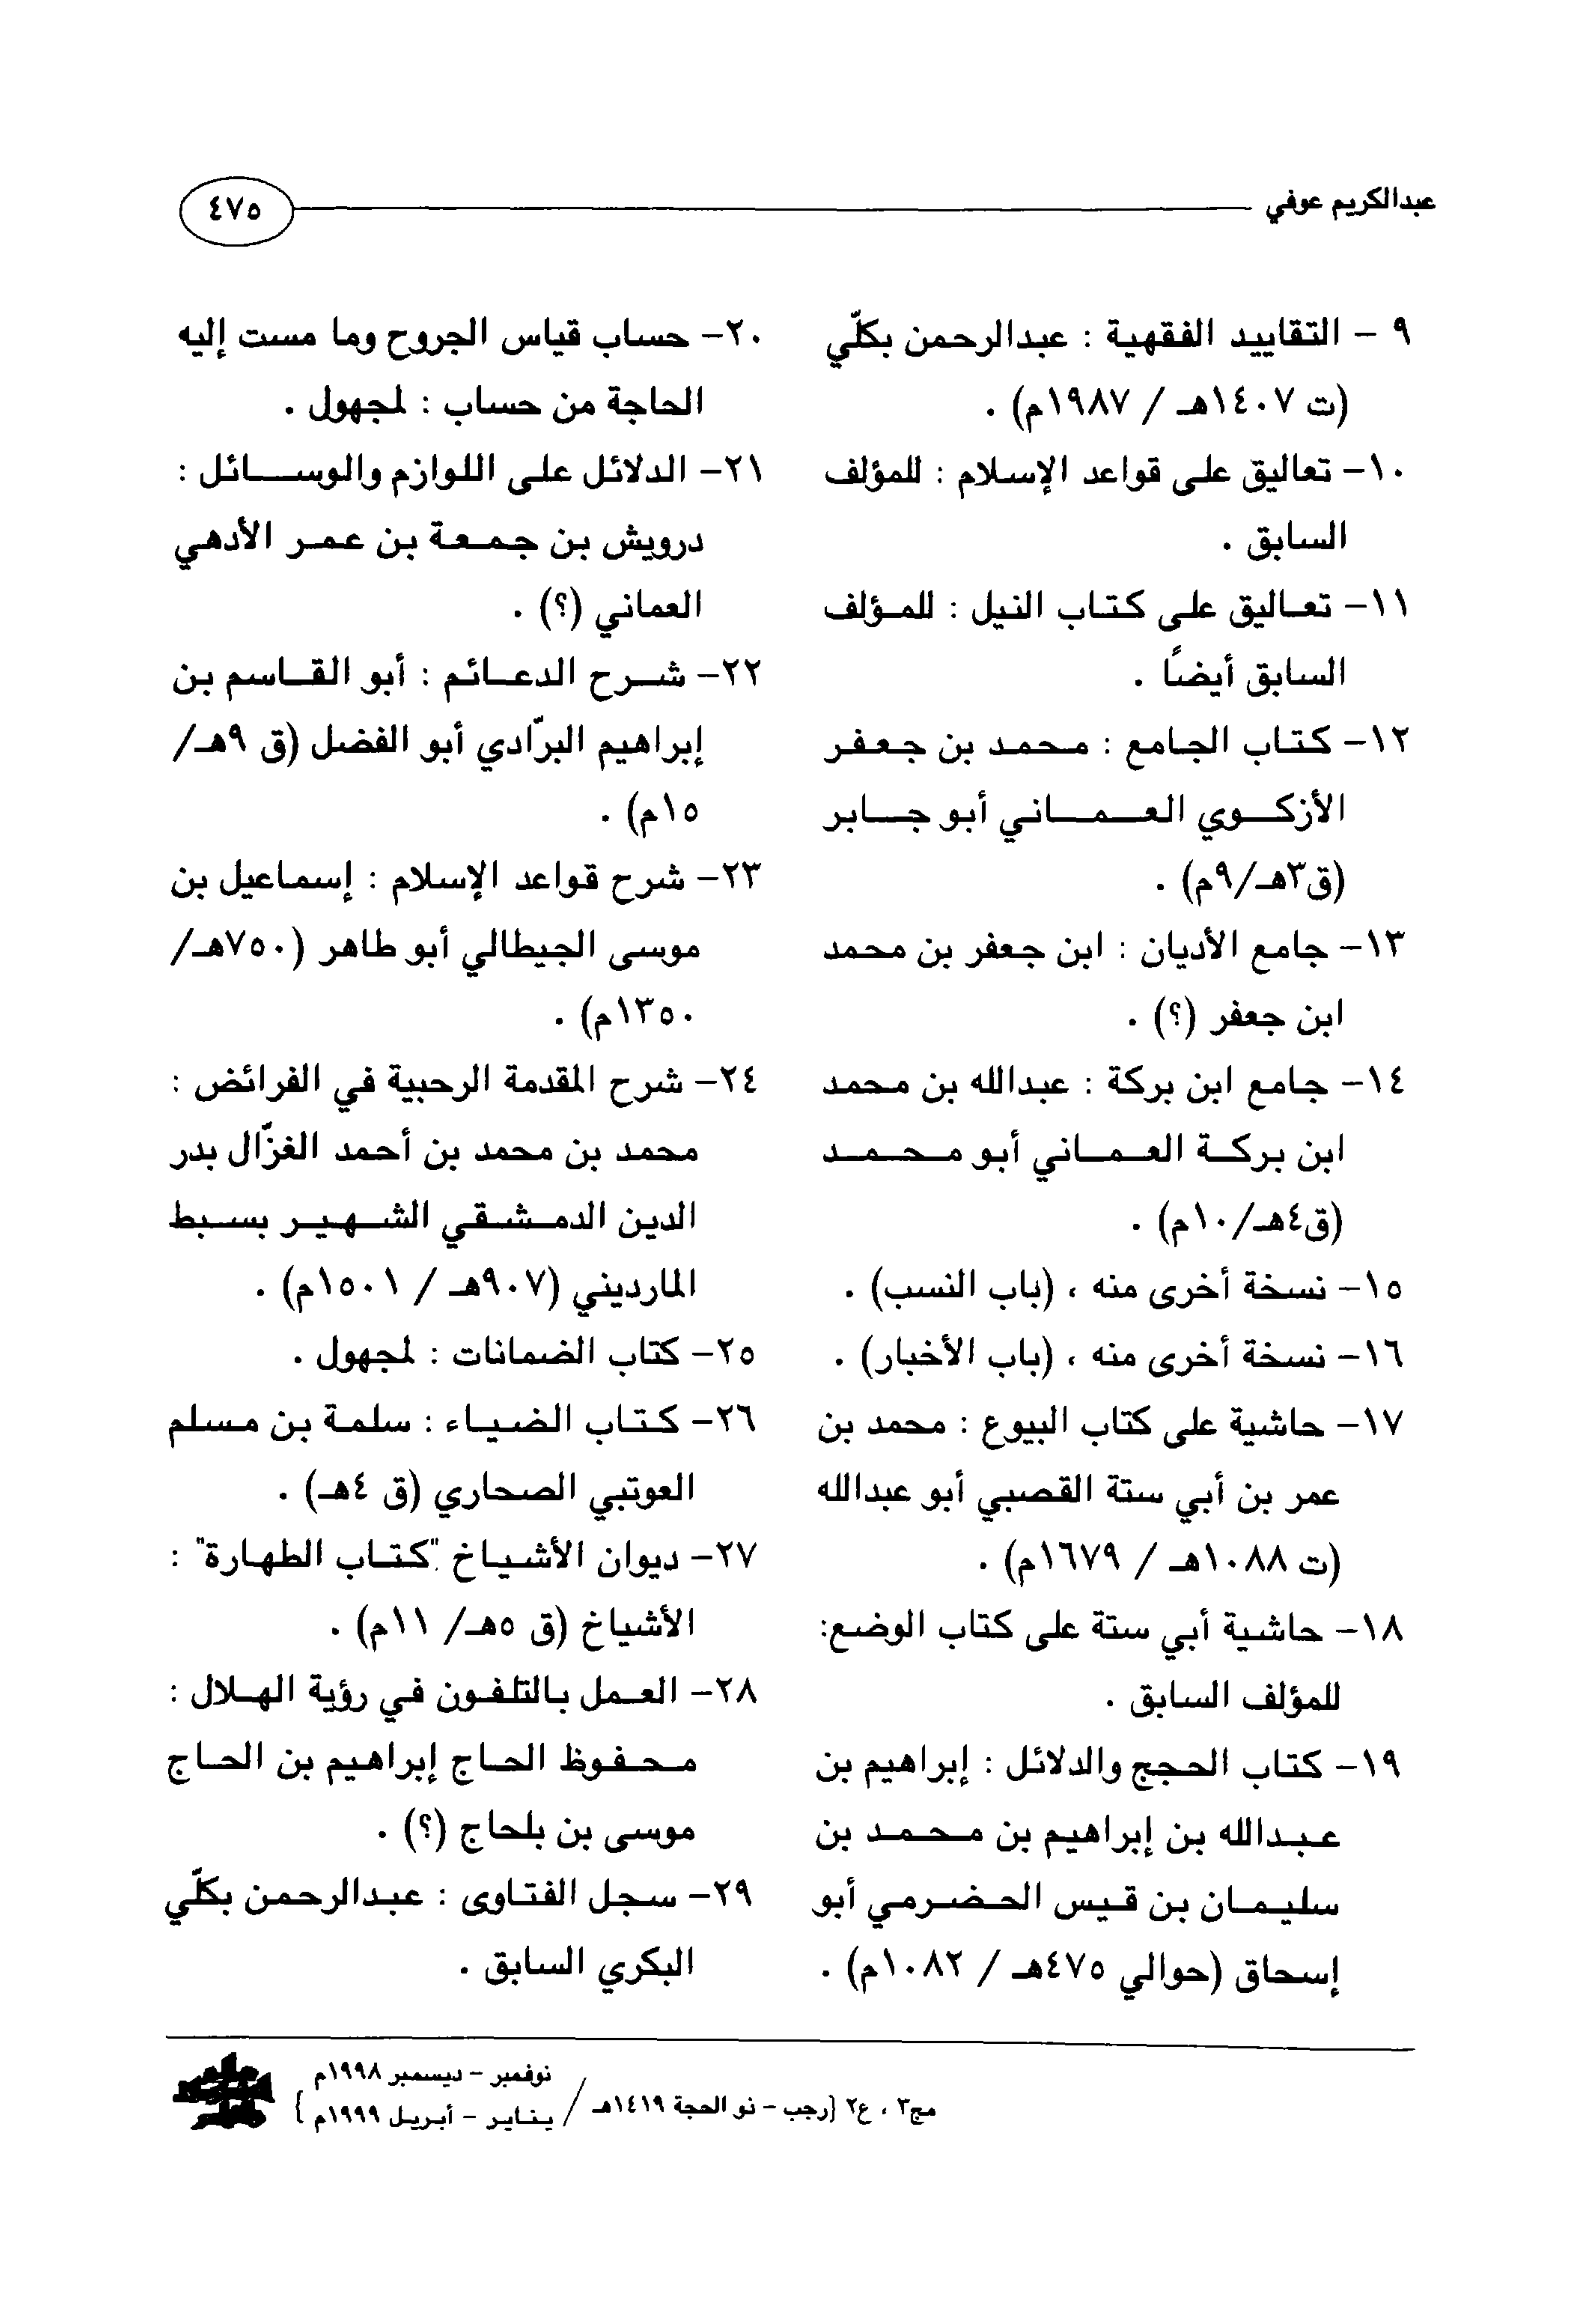 عبدالكريم عوفي
٤٧٥
٩ - التقاييد الفقهية : عبدالرحمن بكلّي
(ت ١٤٠٧هـ / ١٩٨٧م) .
١٠- تعاليق على قواعد الإسلام : للمؤلف
السابق .
١١- تعاليق على كتاب النيل : للمؤلف
السابق أيضًا .
١٢- كتاب الجامع : محمد بن جعفر
الأزكوي العماني أبو جابر
(ق٣هـ/٩م) .
١٣- جامع الأديان : ابن جعفر بن محمد
ابن جعفر (؟) .
١٤- جامع ابن بركة : عبدالله بن محمد
ابن بركة العماني أبو محمد
(ق٤هـ/١٠م) .
١٥- نسخة أخرى منه ، (باب النسب) .
١٦- نسخة أخرى منه ، (باب الأخبار) .
١٧- حاشية على كتاب البيوع : محمد بن
عمر بن أبي ستة القصبي أبو عبدالله
(ت ١٠٨٨هـ / ١٦٧٩م) .
١٨- حاشية أبي ستة على كتاب الوضع:
للمؤلف السابق .
١٩- كتاب الحجج والدلائل : إبراهيم بن
عبدالله بن إبراهيم بن محمد بن
سليمان بن قيس الحضرمي أبو
إسحاق (حوالي ٤٧٥هـ / ١٠٨٢م) .
٢٠- حساب قياس الجروح وما مست إليه
الحاجة من حساب : لمجهول .
٢١- الدلائل على اللوازم والوسائل :
درويش بن جمعة بن عمر الأدهي
العماني (؟) .
٢٢- شرح الدعائم : أبو القاسم بن
إبراهيم البرّادي أبو الفضل (ق ٩هـ/
١٥م) .
٢٣- شرح قواعد الإسلام : إسماعيل بن
موسى الجيطالي أبو طاهر (٧٥٠هـ/
١٣٥٠م) .
٢٤- شرح المقدمة الرحبية في الفرائض :
محمد بن محمد بن أحمد الغزّال بدر
الدين الدمشقي الشهير بسبط
المارديني (٩٠٧هـ / ١٥٠١م) .
٢٥- كتاب الضمانات : لمجهول .
٢٦- كتاب الضياء : سلمة بن مسلم
العوتبي الصحاري (ق ٤هـ) .
٢٧- ديوان الأشياخ "كتاب الطهارة" :
الأشياخ (ق ٥هـ/ ١١م) .
٢٨- العمل بالتلفون في رؤية الهلال :
محفوظ الحاج إبراهيم بن الحاج
موسى بن بلحاج (؟) .
٢٩- سجل الفتاوى : عبدالرحمن بكلّي
البكري السابق .
مج٣ ، ع٢ {رجب - ذو الحجة ١٤١٩هـ /
نوفمبر - ديسمبر ١٩٩٨م
يناير - أبريل ١٩٩٩م }